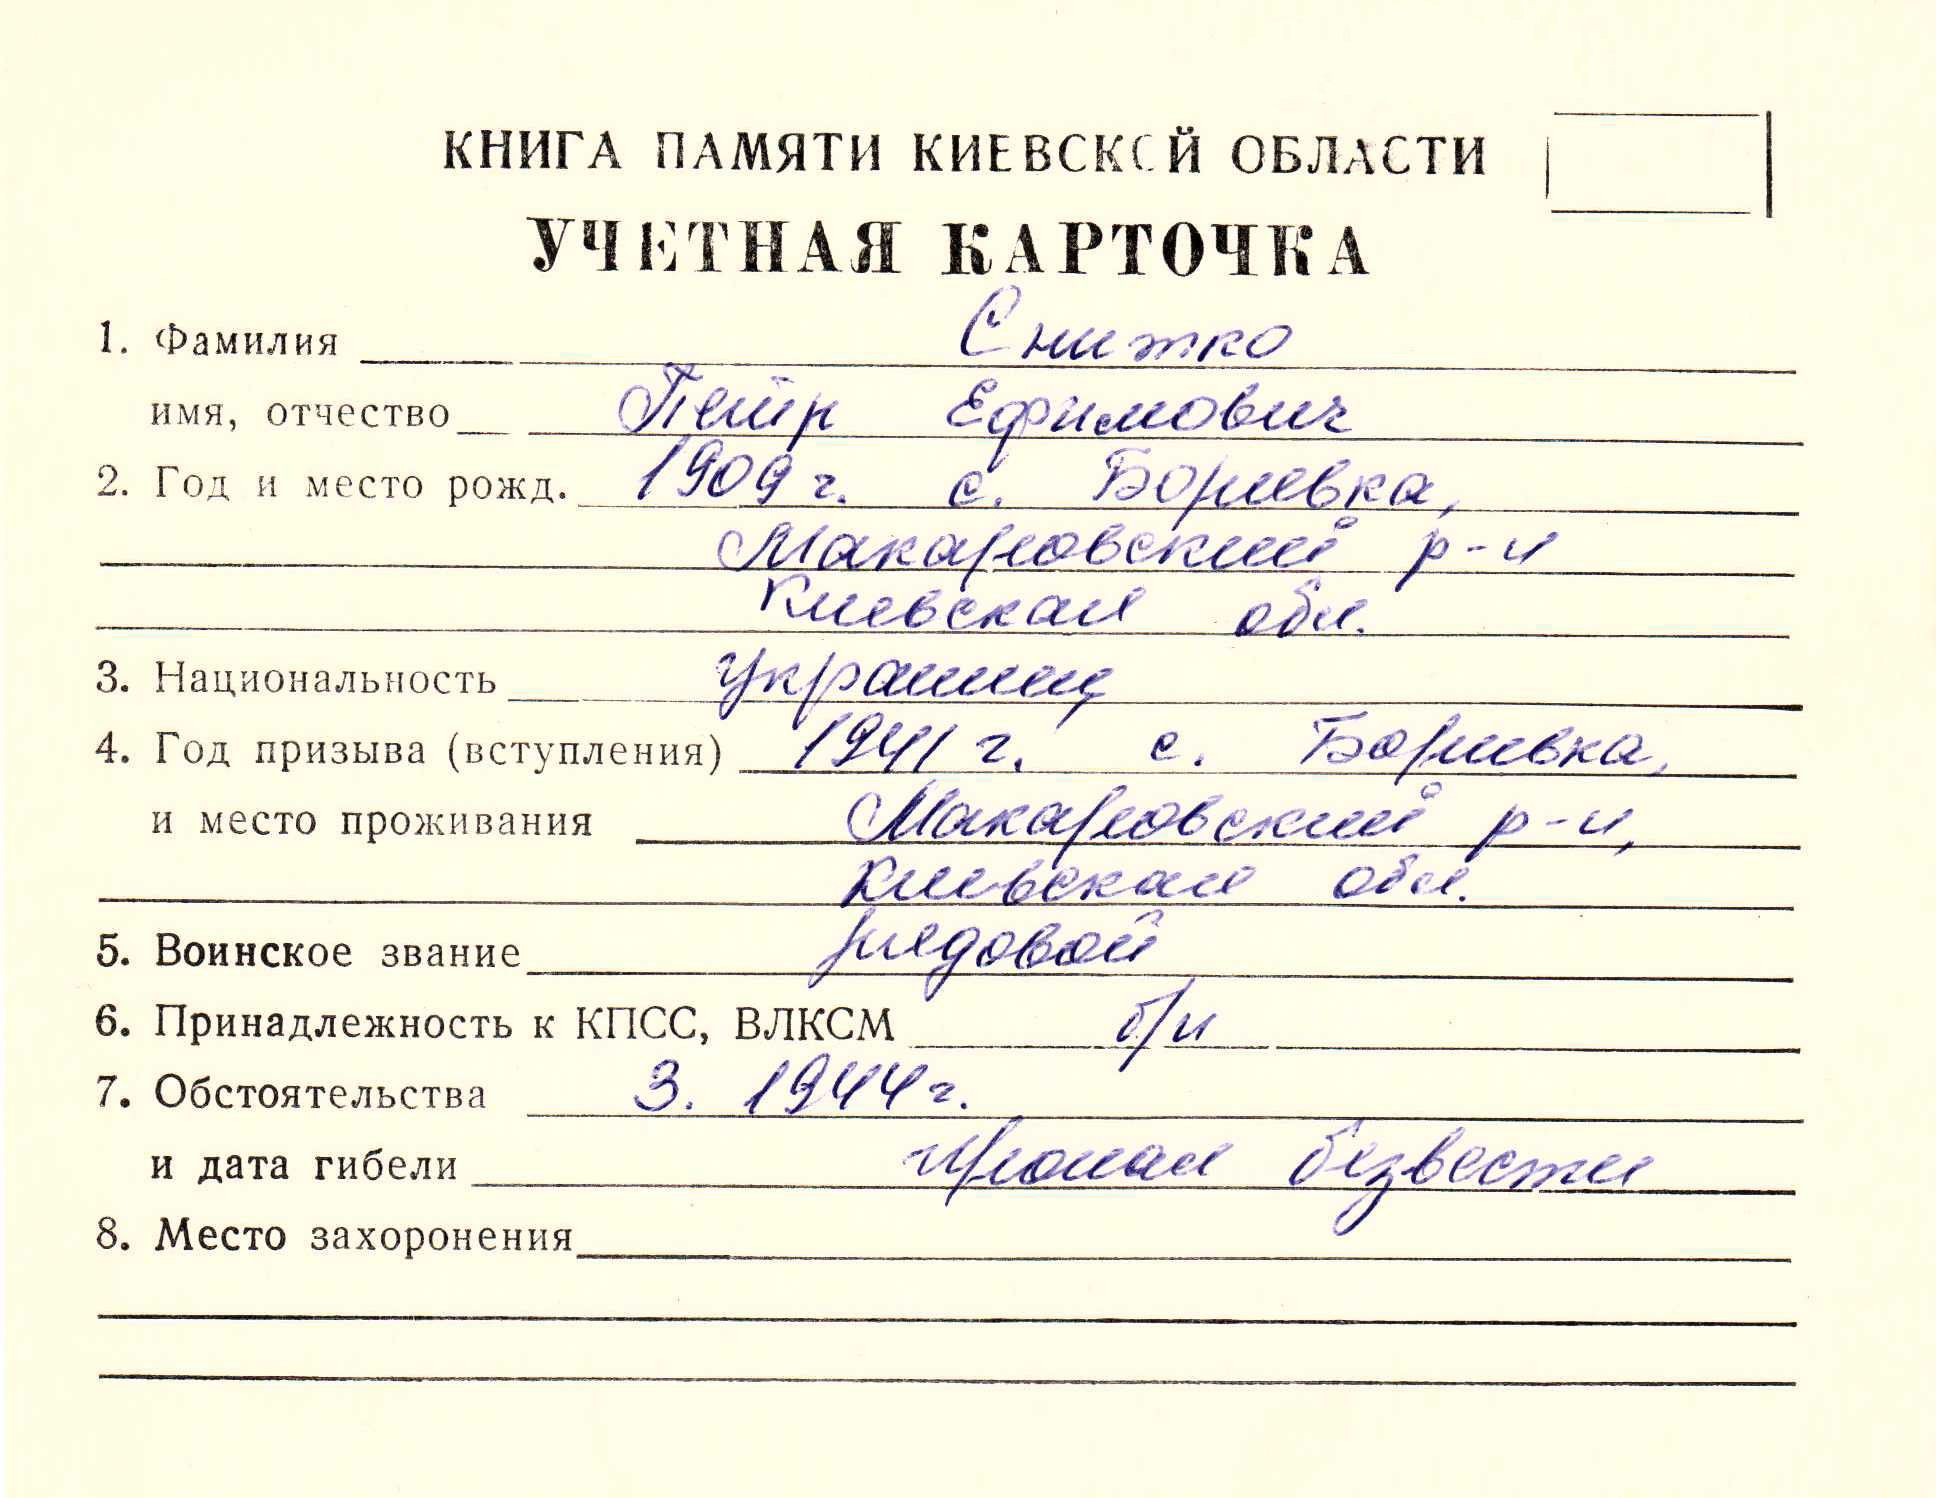 КНИГА ПАМЯТИ КИЕВСКОЙ ОБЛАСТИ
УЧЕТНАЯ КАРТОЧКА
1. Фамилия Снижко
имя, отчество Петр Ефимович
2. Год и место рожд. 1909 г. с. Боривка,
Макаровский р-н
Киевская обл.
3. Национальность украинец
4. Год призыва (вступления) 1941 г. с. Боривка,
и место проживания Макаровский р-н,
Киевская обл.
5. Воинское звание рядовой
6. Принадлежность к КПСС, ВЛКСМ б/п
7. Обстоятельства 3. 1944 г.
и дата гибели пропал безвести
8. Место захоронения